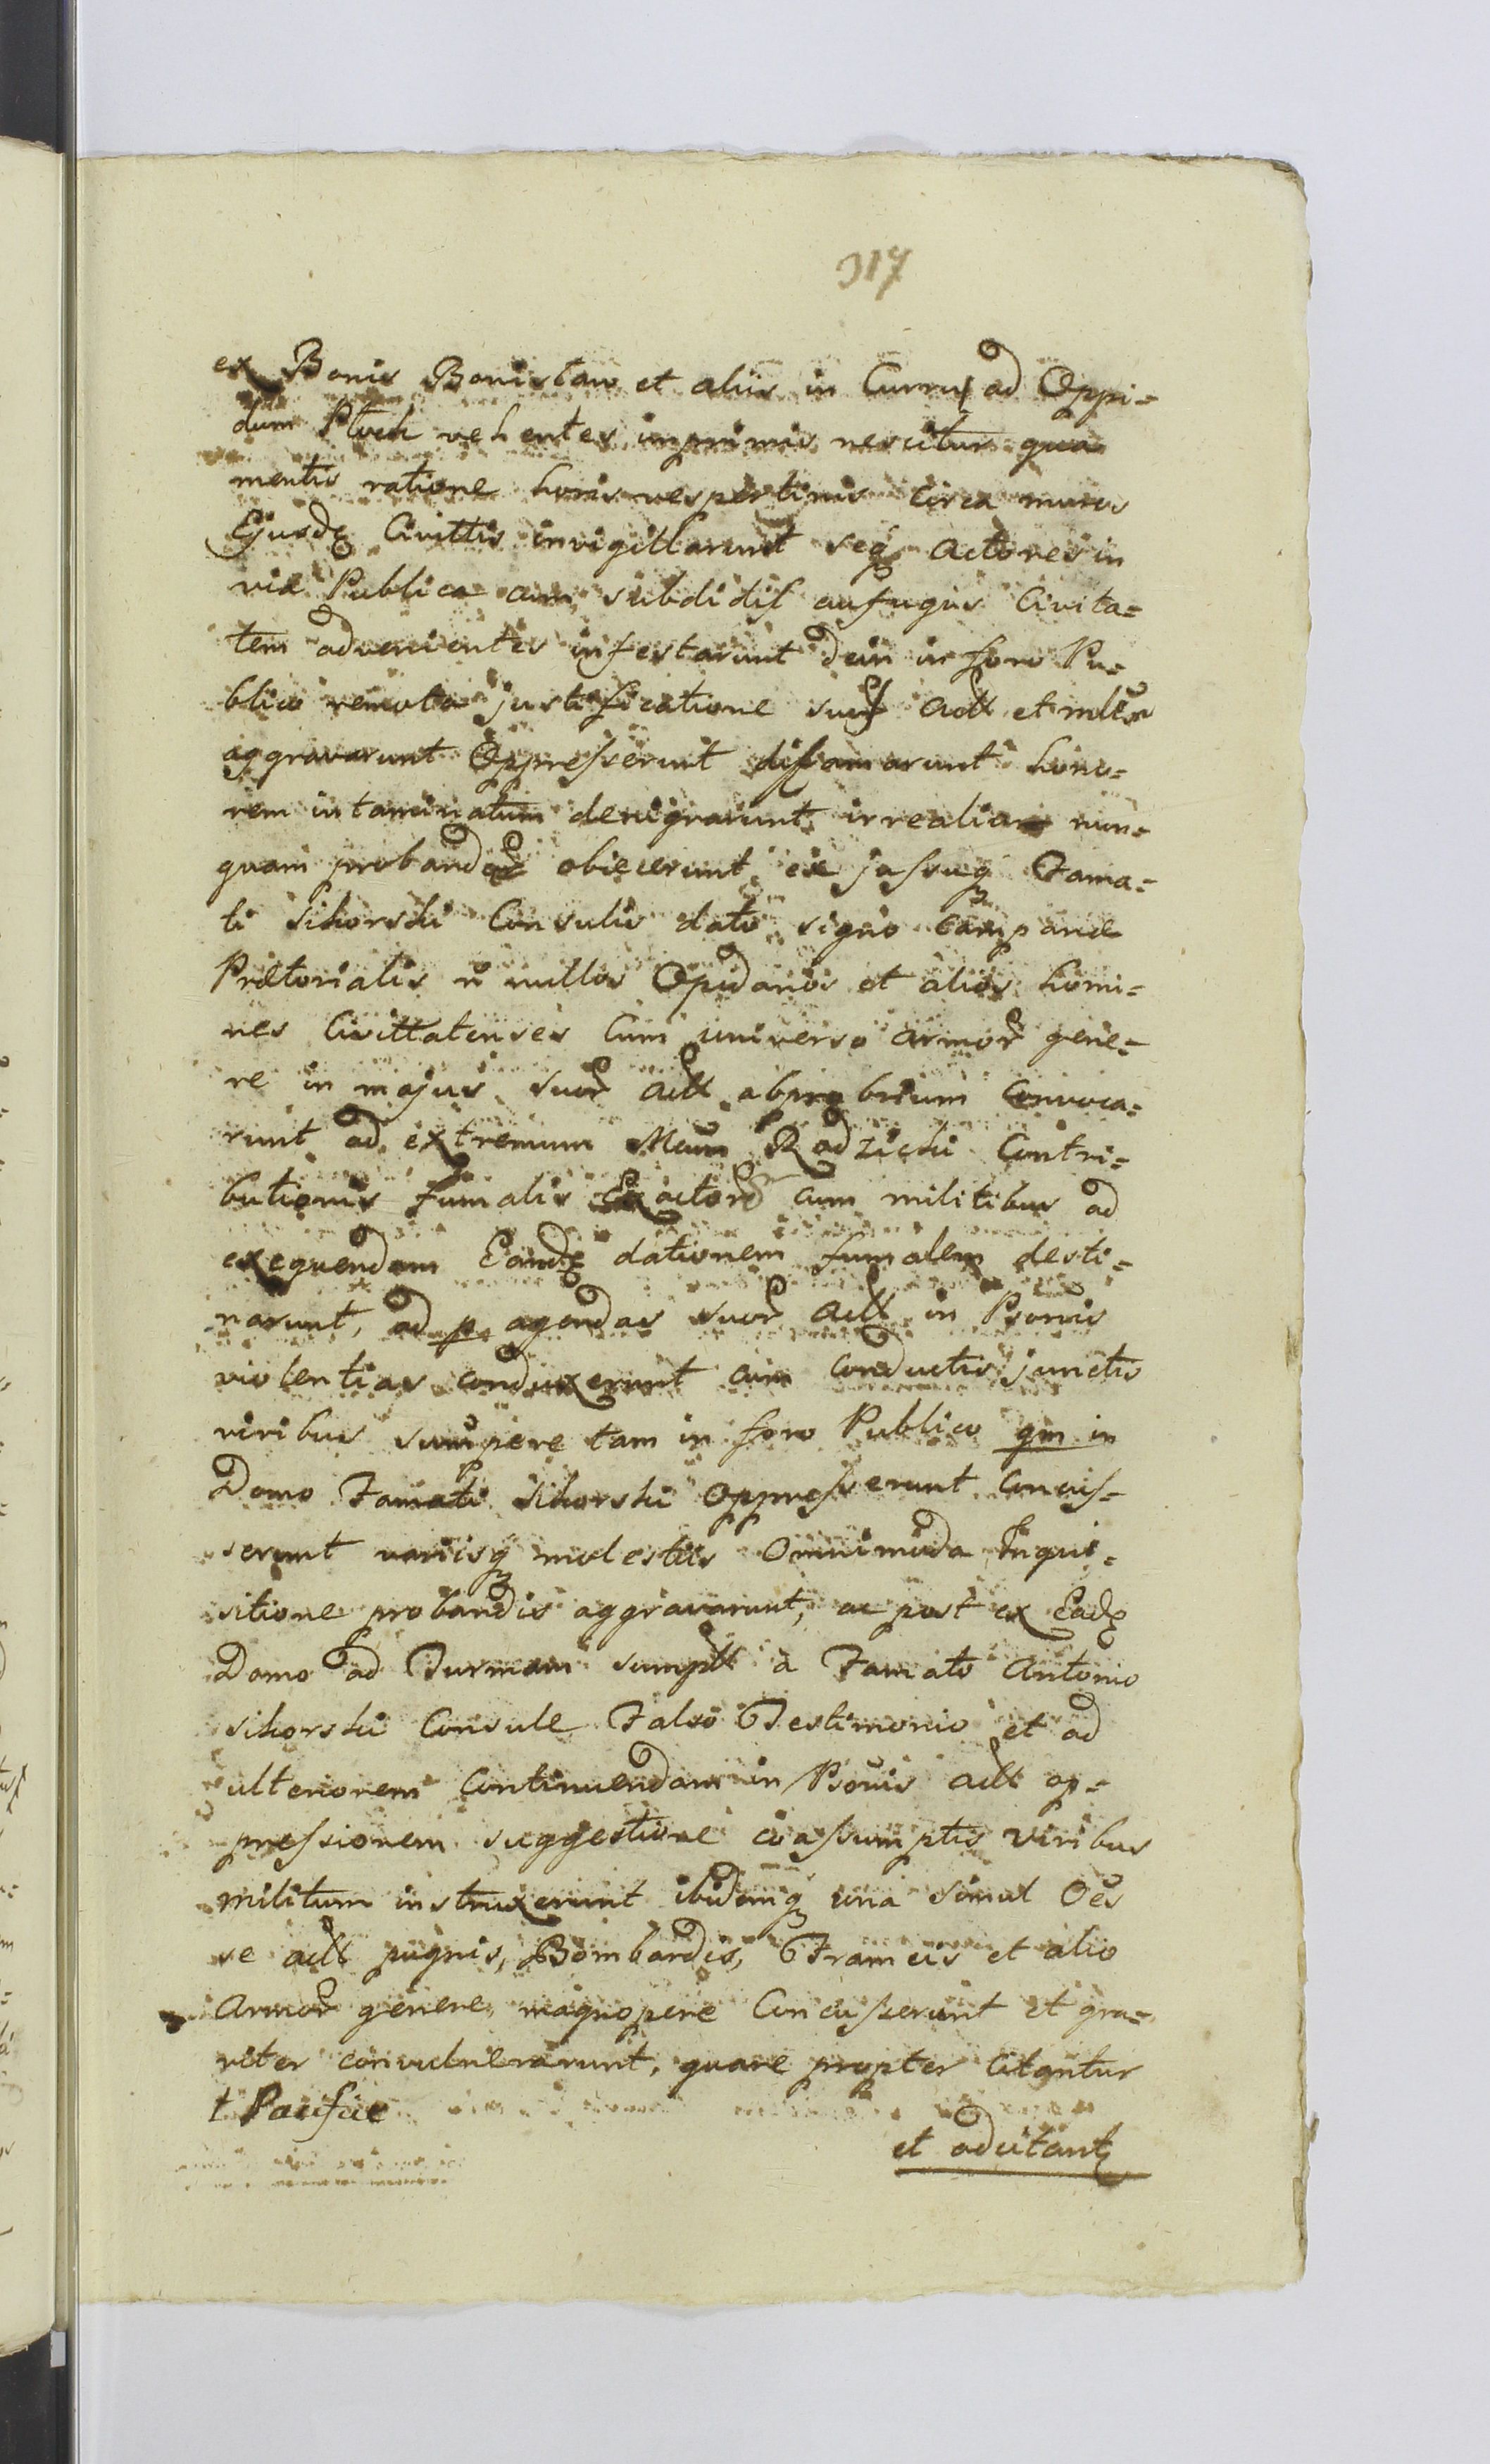 317
ex Bonis Bonisław et aliis in Curru ad Oppi=
dum Płock vehentes inprimis nescitur qua
mentis ratione horis vespertinis circa muros
Ejusdē Civittis invigillarunt seq Actores in
via Publica cum subditis aufugis Civita=
tem advenientes infestarunt dein in foro Pu=
blico remota justificatione suor Actt et
aggravarunt Oppresserunt diffamarunt hono=
rem intaminatum denigrarunt irrealia nun=
quam probanda obiecerunt ex jassuq Fama=
ti Sikorski Consulis dato signo campanæ
Prætorialis ñ nullos Opidanos et alios homi=
nes Civittatenses cum universo armor gene=
re in majus suor Actt abprobrium Convoca=
runt ad extremum Radzicki Contri=
butionis fumalis Exactor cum militibus ad
exequendam Eandē dationem fumalem desti=
narunt, ad p agendas suor Actt in Psonis
violentias conduxerunt cum conductis junctis
viribus tam in foro Publico qm in
Domo Famati Sikorski oppresserunt Concus=
serunt variisq molestiis omnimoda Inqui=
sitione probandis aggravarunt, ac post ex Eadē
Domo ad Turmam sumptt a Famato Antonio
Sikorski Consule Falso Testimonio et ad
ulteriorem Continuendam in Psonis Actt op=
pressionem suggestione coassumptis viribus
militum instruxerunt ibidemq una simul Oēs
se actt pugnis, Bombardis, Frameis et alio
Armor genere magnopere Concusserunt et gra=
viter convulnerarunt, quare propter Citantur
et adcitant